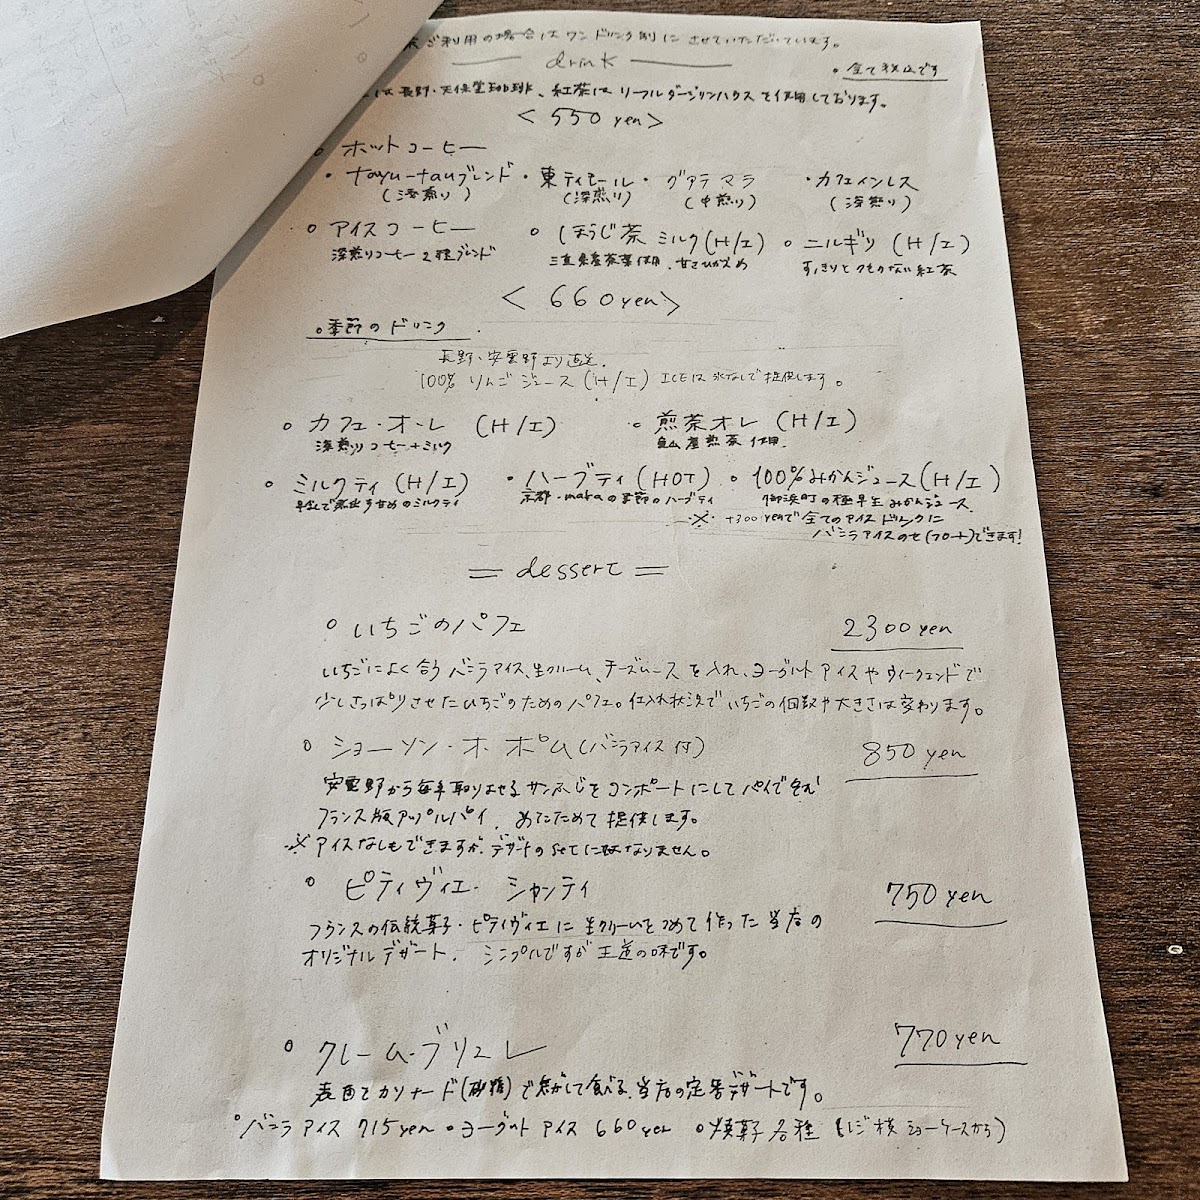 ご利用の場合はワンドリンク制にさせていただいています。
drink
。全て税込です
は長野・天保堂珈琲、紅茶はリーフルダージリンハウスを使用しております。
<550 yen>
。ホットコーヒー
・tayu-tauブレンド ・東ティモール ・グアテマラ ・カフェインレス
(深煎り) (深煎り) (中煎り) (深煎り)
。アイスコーヒー 。ほうじ茶ミルク(H/I) 。ニルギリ (H/I)
深煎りコーヒー2種ブレンド 三重県産茶葉使用、甘さひかえめ すっきりとクセのない紅茶
<660yen>
。季節のドリンク
長野・安曇野より直送。
100% りんごジュース (H/I) ICEは氷なしで提供します。
。カフェ・オ・レ (H/I) 。煎茶オレ (H/I)
深煎りコーヒー+ミルク 亀山産煎茶使用。
。ミルクティ (H/I) ・ハーブティ (HOT) 。100%みかんジュース(H/I)
のミルクティ 京都・maka の季節のハーブティ 御浜町の極早生みかんジュース
※ +300yenで全てのアイスドリンクに
バニラアイスのせ(フロート)できます!
= dessert =
。いちごのパフェ 2300yen
いちごによく合うバニラアイス、生クリーム、チーズムースを入れ、ヨーグルトアイスやウィークエンドで
少しさっぱりさせたいちごのためのパフェ。仕入れ状況でいちごの個数や大きさは変わります。
。ショーソン・オ・ポム(バニラアイス付) 850yen
安曇野から毎年取りよせるサンふじをコンポートにしてパイで包む
フランス版アップルパイ。あたためて提供します。
※アイスなしもできますが、デザートのsetにはなりません。
。ピティヴィエ・シャンティ 750yen
フランスの伝統菓子・ピティヴィエに生クリームをつめて作った当店の
オリジナルデザート。シンプルですが王道の味です。
。クレーム・ブリュレ 770yen
表面でカソナード(砂糖)で焦がして食べる、当店の定番デザートです。
。バニラアイス 715yen 。ヨーグルトアイス 660yen 。焼菓子各種 (レジ横ショーケースから)